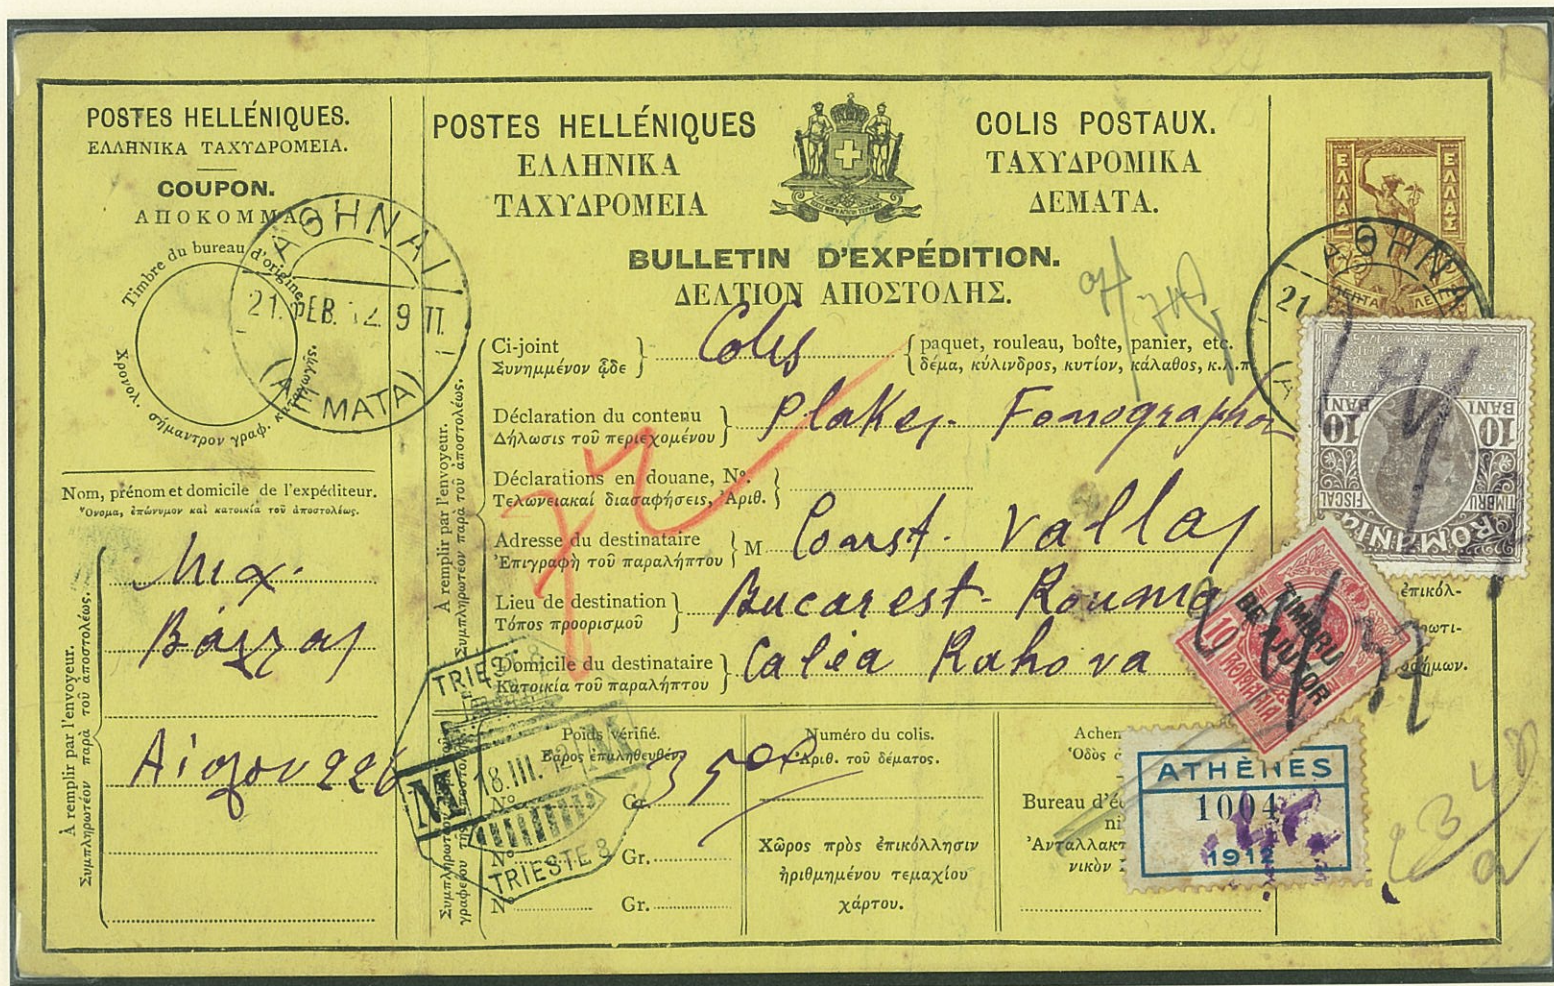 POSTES HELLÉNIQUES.
ΕΛΛΗΝΙΚΑ ΤΑΧΥΔΡΟΜΕΙΑ.
COUPON.
ΑΠΟΚΟΜΜΑ
Timbre du bureau d'origine.
Χρονολ. σήμαντρον γραφ. καταγωγῆς.
ΑΘΗΝΑΙ
21. FEB. 12. 9 Π.
(ΔΕΜΑΤΑ)
Nom, prénom et domicile de l'expéditeur.
Ὄνομα, ἐπώνυμον καὶ κατοικία τοῦ ἀποστολέως.
À remplir par l'envoyeur.
Συμπληρωτέον παρὰ τοῦ ἀποστολέως.
Μιχ.
Βάλλας
Αἰόλου 226
POSTES HELLÉNIQUES
ΕΛΛΗΝΙΚΑ
ΤΑΧΥΔΡΟΜΕΙΑ
COLIS POSTAUX.
ΤΑΧΥΔΡΟΜΙΚΑ
ΔΕΜΑΤΑ.
BULLETIN D'EXPÉDITION.
ΔΕΛΤΙΟΝ ΑΠΟΣΤΟΛΗΣ.
À remplir par l'envoyeur.
Συμπληρωτέον παρὰ τοῦ ἀποστολέως.
Ci-joint
Συνημμένον ᾧδε
Colis
paquet, rouleau, boîte, panier, etc.
δέμα, κύλινδρος, κυτίον, κάλαθος, κ.λ.π.
Déclaration du contenu
Δήλωσις τοῦ περιεχομένου
Plakes Fonographon
Déclarations en douane, Nº.
Τελωνειακαί διασαφήσεις, Ἀριθ.
Adresse du destinataire
Ἐπιγραφὴ τοῦ παραλήπτου
M Const. Vallas
Lieu de destination
Τόπος προορισμοῦ
Bucarest - Rouma
Domicile du destinataire
Κατοικία τοῦ παραλήπτου
Calea Rahova
ἐπικόλ-
Poids vérifié.
Βάρος ἐπαληθευθέν.
Nº Gr.
3500
Nº Gr.
Nº Gr.
Numéro du colis.
Ἀριθ. τοῦ δέματος.
Χῶρος πρὸς ἐπικόλλησιν
ἠριθμημένου τεμαχίου
χάρτου.
Achem
Ὁδὸς
Bureau d'é
Ἀνταλλακτ
νικὸν
TRIESTE 8
M 18.III.12 M
TRIESTE 8
ΕΛΛΑΣ
ΕΛΛΑΣ
ΛΕΠΤΑ ΛΕΠ
ΑΘΗΝΑ
21
10 BANI
10 BANI
TIMBRU FISCAL
ROMANIA
TIMBRU
DE AJUTOR
10
ROMANIA
ATHÈNES
1004
1912